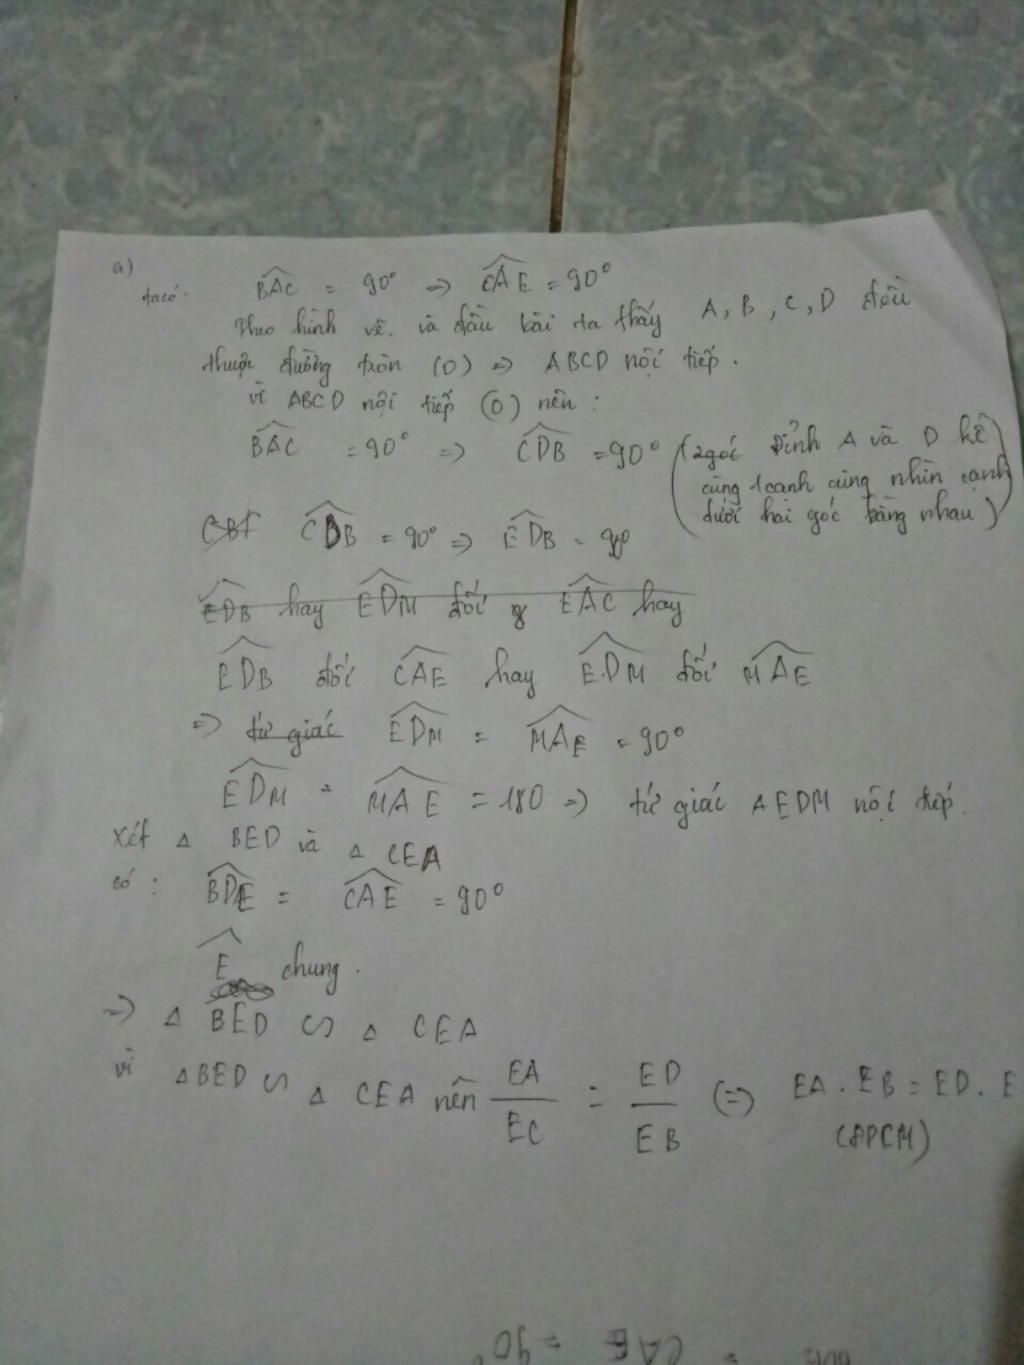 a)
ta có: BAC = 90° => CAE = 90°
Theo hình vẽ và đầu bài ta thấy A, B, C, D đều
thuộc đường tròn (O) => ABCD nội tiếp.
vì ABCD nội tiếp (O) nên:
BAC = 90° => CDB = 90° (2 góc đỉnh A và D kề
cùng 1 cạnh cùng nhìn cạnh
dưới hai góc bằng nhau)
CDB = 90° => EDB = 90°
EDB hay EDM đối EAC hay
EDB đối CAE hay EDM đối MAE
=> tứ giác EDM = MAE = 90°
EDM + MAE = 180 => tứ giác AEDM nội tiếp.
Xét △ BED và △ CEA
có: BDE = CAE = 90°
E chung.
=> △ BED ∽ △ CEA
vì △BED ∽ △ CEA nên EA/EC = ED/EB (=> EA . EB = ED . E
(ĐPCM)
CAE = 90°